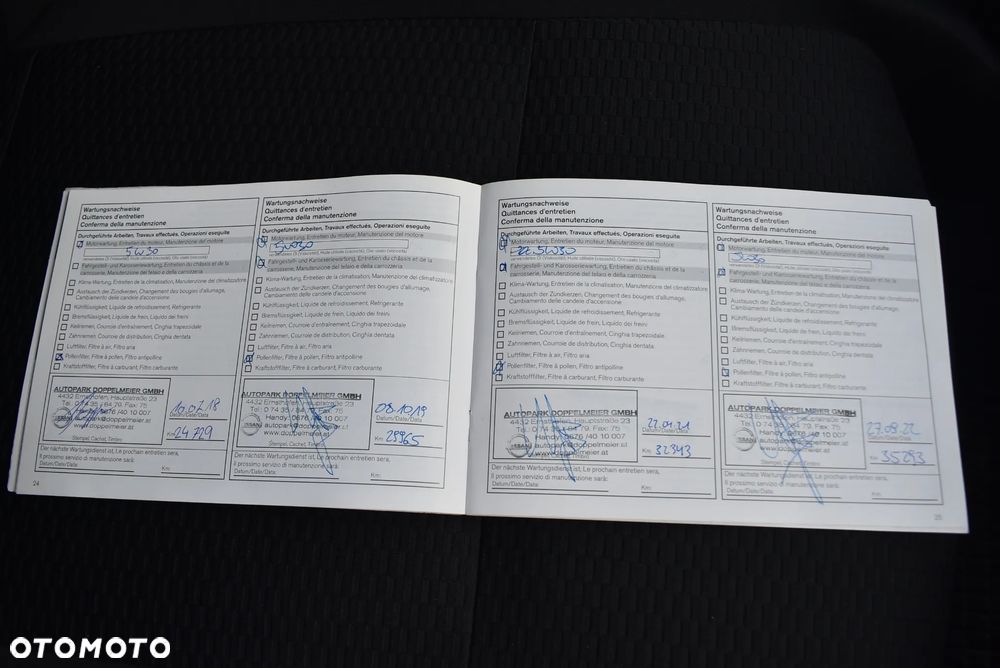 Wartungsnachweise
Quittances d'entretien
Conferma della manutenzione
Durchgeführte Arbeiten, Travaux effectués, Operazioni eseguite
Motorwartung, Entretien du moteur, Manutenzione del motore
5W30
Fahrgestell- und Karosseriewartung, Entretien du châssis et de la
carrosserie, Manutenzione del telaio e della carrozzeria
Klima-Wartung, Entretien de la climatisation, Manutenzione del climatizzatore
Austausch der Zündkerzen, Changement des bougies d'allumage,
Cambiamento delle candele d'accensione
Kühlflüssigkeit, Liquide de refroidissement, Refrigerante
Bremsflüssigkeit, Liquide de frein, Liquido dei freini
Keilriemen, Courroie d'entraînement, Cinghia trapezoidale
Zahnriemen, Courroie de distribution, Cinghia dentata
Luftfilter, Filtre à air, Filtro aria
Pollenfilter, Filtre à pollen, Filtro antipolline
Kraftstofffilter, Filtre à carburant, Filtro carburante
AUTOPARK DOPPELMEIER GMBH
4432 Ernsthofen, Hauptstraße 23
Handy: 0676 /40 10 007
autopark@doppelmeier.at
www.doppelmeier.at
Stempel, Cachet, Timbro
16.07.18
Datum/Date/Data
Km 24729
Der nächste Wartungsdienst ist, Le prochain entretien sera,
Il prossimo servizio di manutenzione sarà:
Datum/Date/Data:
Km:
24
Wartungsnachweise
Quittances d'entretien
Conferma della manutenzione
Durchgeführte Arbeiten, Travaux effectués, Operazioni eseguite
Motorwartung, Entretien du moteur, Manutenzione del motore
5W30
Fahrgestell- und Karosseriewartung, Entretien du châssis et de la
carrosserie, Manutenzione del telaio e della carrozzeria
Klima-Wartung, Entretien de la climatisation, Manutenzione del climatizzatore
Austausch der Zündkerzen, Changement des bougies d'allumage,
Cambiamento delle candele d'accensione
Kühlflüssigkeit, Liquide de refroidissement, Refrigerante
Bremsflüssigkeit, Liquide de frein, Liquido dei freini
Keilriemen, Courroie d'entraînement, Cinghia trapezoidale
Zahnriemen, Courroie de distribution, Cinghia dentata
Luftfilter, Filtre à air, Filtro aria
Pollenfilter, Filtre à pollen, Filtro antipolline
Kraftstofffilter, Filtre à carburant, Filtro carburante
AUTOPARK DOPPELMEIER GMBH
4432 Ernsthofen, Hauptstraße 23
Handy: 0676 /40 10 007
autopark@doppelmeier.at
www.doppelmeier.at
Stempel, Cachet, Timbro
08.10.19
Datum/Date/Data
Km 28965
Der nächste Wartungsdienst ist, Le prochain entretien sera,
Il prossimo servizio di manutenzione sarà:
Datum/Date/Data:
Km:
Wartungsnachweise
Quittances d'entretien
Conferma della manutenzione
Durchgeführte Arbeiten, Travaux effectués, Operazioni eseguite
Motorwartung, Entretien du moteur, Manutenzione del motore
5W30
Fahrgestell- und Karosseriewartung, Entretien du châssis et de la
carrosserie, Manutenzione del telaio e della carrozzeria
Klima-Wartung, Entretien de la climatisation, Manutenzione del climatizzatore
Austausch der Zündkerzen, Changement des bougies d'allumage,
Cambiamento delle candele d'accensione
Kühlflüssigkeit, Liquide de refroidissement, Refrigerante
Bremsflüssigkeit, Liquide de frein, Liquido dei freini
Keilriemen, Courroie d'entraînement, Cinghia trapezoidale
Zahnriemen, Courroie de distribution, Cinghia dentata
Luftfilter, Filtre à air, Filtro aria
Pollenfilter, Filtre à pollen, Filtro antipolline
Kraftstofffilter, Filtre à carburant, Filtro carburante
AUTOPARK DOPPELMEIER GMBH
4432 Ernsthofen, Hauptstraße 23
Handy: 0676 /40 10 007
autopark@doppelmeier.at
www.doppelmeier.at
22.01.21
Datum/Date/Data
Km 32343
Der nächste Wartungsdienst ist, Le prochain entretien sera,
Il prossimo servizio di manutenzione sarà:
Datum/Date/Data:
Km:
Wartungsnachweise
Quittances d'entretien
Conferma della manutenzione
Durchgeführte Arbeiten, Travaux effectués, Operazioni eseguite
Motorwartung, Entretien du moteur, Manutenzione del motore
5W30
Fahrgestell- und Karosseriewartung, Entretien du châssis et de la
carrosserie, Manutenzione del telaio e della carrozzeria
Klima-Wartung, Entretien de la climatisation, Manutenzione del climatizzatore
Austausch der Zündkerzen, Changement des bougies d'allumage,
Cambiamento delle candele d'accensione
Kühlflüssigkeit, Liquide de refroidissement, Refrigerante
Bremsflüssigkeit, Liquide de frein, Liquido dei freini
Keilriemen, Courroie d'entraînement, Cinghia trapezoidale
Zahnriemen, Courroie de distribution, Cinghia dentata
Luftfilter, Filtre à air, Filtro aria
Pollenfilter, Filtre à pollen, Filtro antipolline
Kraftstofffilter, Filtre à carburant, Filtro carburante
AUTOPARK DOPPELMEIER GMBH
4432 Ernsthofen, Hauptstraße 23
Handy: 0676 /40 10 007
autopark@doppelmeier.at
www.doppelmeier.at
Stempel, Cachet, Timbro
27.08.22
Datum/Date/Data
Km 35293
Der nächste Wartungsdienst ist, Le prochain entretien sera,
Il prossimo servizio di manutenzione sarà:
Datum/Date/Data:
Km:
25
OTOMOTO